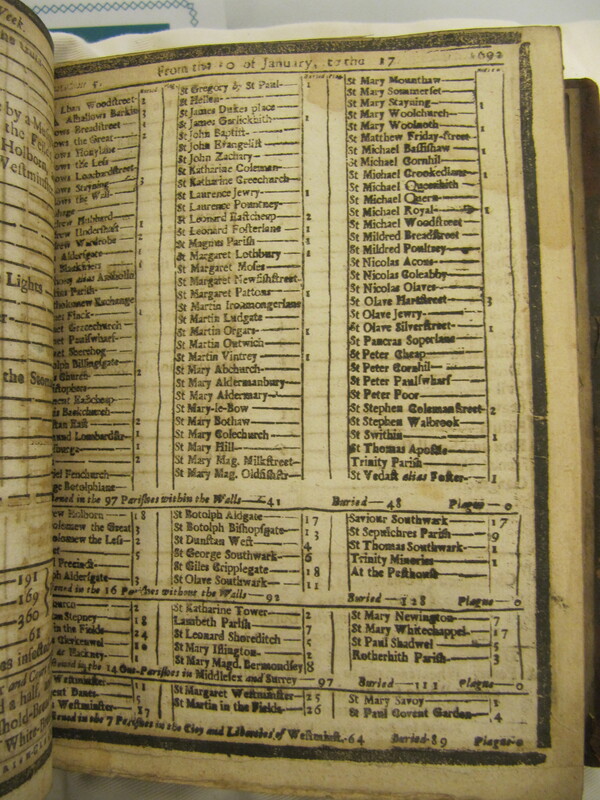 Week.
From the 10 of January, to the 17 1692
Lban Woodstreet 2
Alhallows Barkin 3
ows Breadstreet 1
ows the Great 2
ows Honylane
ows the Less
ows Lombardstreet
ows Stayning 3
ows the Wall
drew Hubbard
drew Undershaft
drew Wardrobe 2
Aldersgate
Blackfriers
tholomew Exchange
et Finck
et Gracechurch
et Paulswharf
olph Billingsgate
s Church 2
ment Eastcheap
is Backchurch
tan East 2
und Lombardstr 1
el Fenchurch
ge Botolphlane
St Gregory by St Paul 1
St Hellen
St James Dukes place
St James Garlickhith 1
St John Baptist
St John Evangelist
St John Zachary
St Katharine Coleman
St Katharine Creechurch
St Laurence Jewry 1
St Laurence Pountney
St Leonard Eastcheap 2
St Leonard Fosterlane 1
St Magnus Parish
St Margaret Lothbury 1
St Margaret Moses
St Margaret Newfishstreet
St Margaret Pattons 1
St Martin Ironmongerlane
St Martin Ludgate
St Martin Orgars 1
St Martin Outwich
St Martin Vintrey 1
St Mary Abchurch
St Mary Aldermanbury
St Mary Aldermary
St Mary-le-Bow
St Mary Bothaw
St Mary Colechurch
St Mary Hill
St Mary Mag. Milkstreet
St Mary Mag. Oldfishstr
St Mary Mounthaw
St Mary Sommerset
St Mary Stayning 1
St Mary Woolchurch
St Mary Woolnoth 1
St Matthew Friday-street
St Michael Bassishaw 1
St Michael Cornhil
St Michael Crookedlane 1
St Michael Queenhith
St Michael Quern
St Michael Royal 1
St Michael Woodstreet
St Mildred Breadstreet
St Mildred Poultrey
St Nicolas Acons
St Nicolas Coleabby
St Nicolas Olaves
St Olave Hartstreet 3
St Olave Jewry
St Olave Silverstreet 1
St Pancras Soperlane
St Peter Cheap
St Peter Cornhil
St Peter Paulswharf
St Peter Poor
St Stephen Colemanstreet 2
St Stephen Walbrook
St Swithin 1
St Thomas Apostle
Trinity Parish
St Vedast alias Foster 1
in the 97 Parishes within the Walls 41 Buried 48 Plague 0
ew Holborn 18
olomew the Great 3
olomew the Less 2
et 5
Precinct
ph Aldersgate 3
St Botolph Aldgate 17
St Botolph Bishopsgate 13
St Dunstan West 4
St George Southwark 6
St Giles Cripplegate 18
St Olave Southwark 11
Saviour Southwark 17
St Sepulchres Parish 9
St Thomas Southwark 1
Trinity Minories 1
At the Pesthouse
in the 16 Parishes without the Walls 92 Buried 128 Plague 0
Stepney 18
in the Fields 24
Clerkenwel 10
at Hackney 1
St Katharine Tower 2
Lambeth Parish 7
St Leonard Shoreditch 5
St Mary Islington 2
St Mary Magd. Bermondsey 8
St Mary Newington 7
St Mary Whitechappel 17
St Paul Shadwel 5
Rotherhith Parish 3
in the 14 Out-Parishes in Middlesex and Surrey 97 Buried 113 Plague 0
Westminster 11
ent Danes 5
17
St Margaret Westminster 25
St Martin in the Fields 26
St Mary Savoy 1
St Paul Covent Garden 4
in the 7 Parishes in the City and Liberties of Westminst. 64 Buried 89 Plague 0
Lights
the Stom
191
169
360
61
and a half,
White